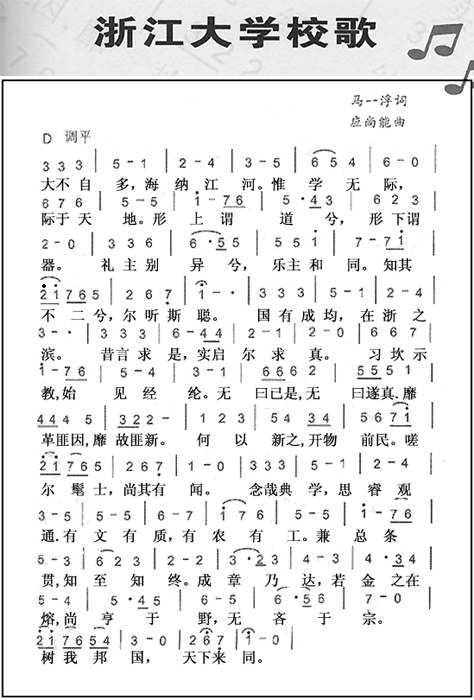 浙江大学校歌
马一浮词
应尚能曲
D 调平
3 3 3 | 5 - 1 | 2 - 4 | 3 - 5 | 6 5 4 | 6 - 0
大不自多，海纳江河。惟学无际，
6 7 6 | 5 - 5 | 1 - 7 6 | 5 · 4 3 | 6 2 3
际于天地。形上谓道兮，形下谓
2 - 0 | 3 3 6 | 6 · 5 5 | 5 5 1 | 7 - 7 1
器。礼主别异兮，乐主和同。知其
2 1 7 6 5 | 2 6 7 | 1 - · | 3 3 3 | 5 - 1 | 2 - 4
不二兮，尔听斯聪。国有成均，在浙之
3 - · | 3 3 3 | 6 - 4 4 | 2 - 1 | 2 - 0 | 6 6 7
滨。昔言求是，实启尔求真。习坎示
1 - 7 6 | 5 - 4 | 3 - 1 | 6 6 6 2 | 5 5 5 1
教，始见经纶。无曰已是，无曰遂真。靡
4 4 4 5 | 3 2 2 - | 1 2 3 | 5 4 3 4 | 5 6 7 1
革匪因，靡故匪新。何以新之，开物前民。嗟
2 1 7 6 5 | 2 6 7 | 1 - 0 | 3 3 3 | 5 - 1 | 2 - 4
尔髦士，尚其有闻。念哉典学，思睿观
3 - 5 | 5 - 5 | 6 - 7 | 1 7 6 | 5 - 5 | 1 - 7 6
通。有文有质，有农有工。兼总条
5 - 3 | 6 2 3 | 2 - 2 | 3 · 2 3 | 4 - 3 | 4 · 3 4
贯，知至知终。成章乃达，若金之在
5 - 4 | 5 · 4 5 | 6 - 5 | 6 · 5 6 | 7 - 0
熔，尚亨于野，无吝于宗。
2 1 7 6 5 4 | 3 - 0 | 2 6 7 | 1 - 0
树我邦国，天下来同。